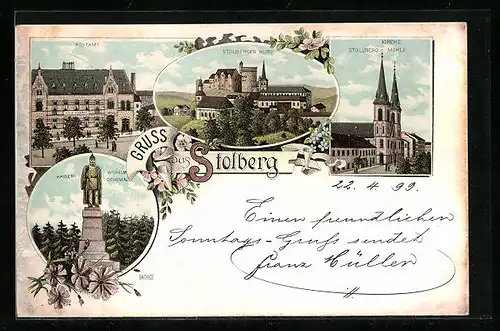 POSTAMT
STOLBERGER BURG
KIRCHE
STOLBERG MÜHLE
GRUSS
aus
Stolberg
KAISER WILHELM
DENKMAL
22. 4. 99.
Einen freundlichen
Sonntags-Gruß sendet
Franz Müller